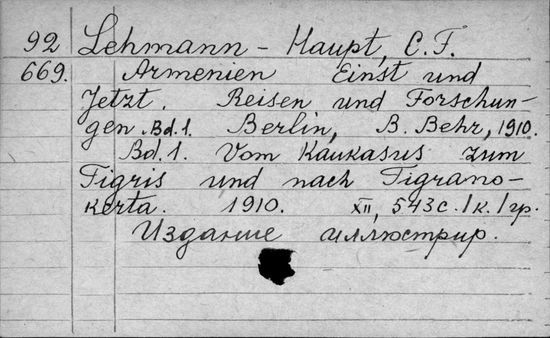 92 Lehmann - Haupt, C.F.
669. Armenien Einst und
Jetzt. Reisen und Forschun-
gen. Bd.1. Berlin, B. Behr, 1910.
Bd.1. Vom Kaukasus zum
Tigris und nach Tigrano-
kerta. 1910. XII, 543 с. 1 к. 1 гр.
Издание иллюстрир.